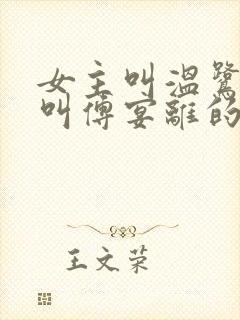 女主叫温鹭
叫傅宴離的
王文荣